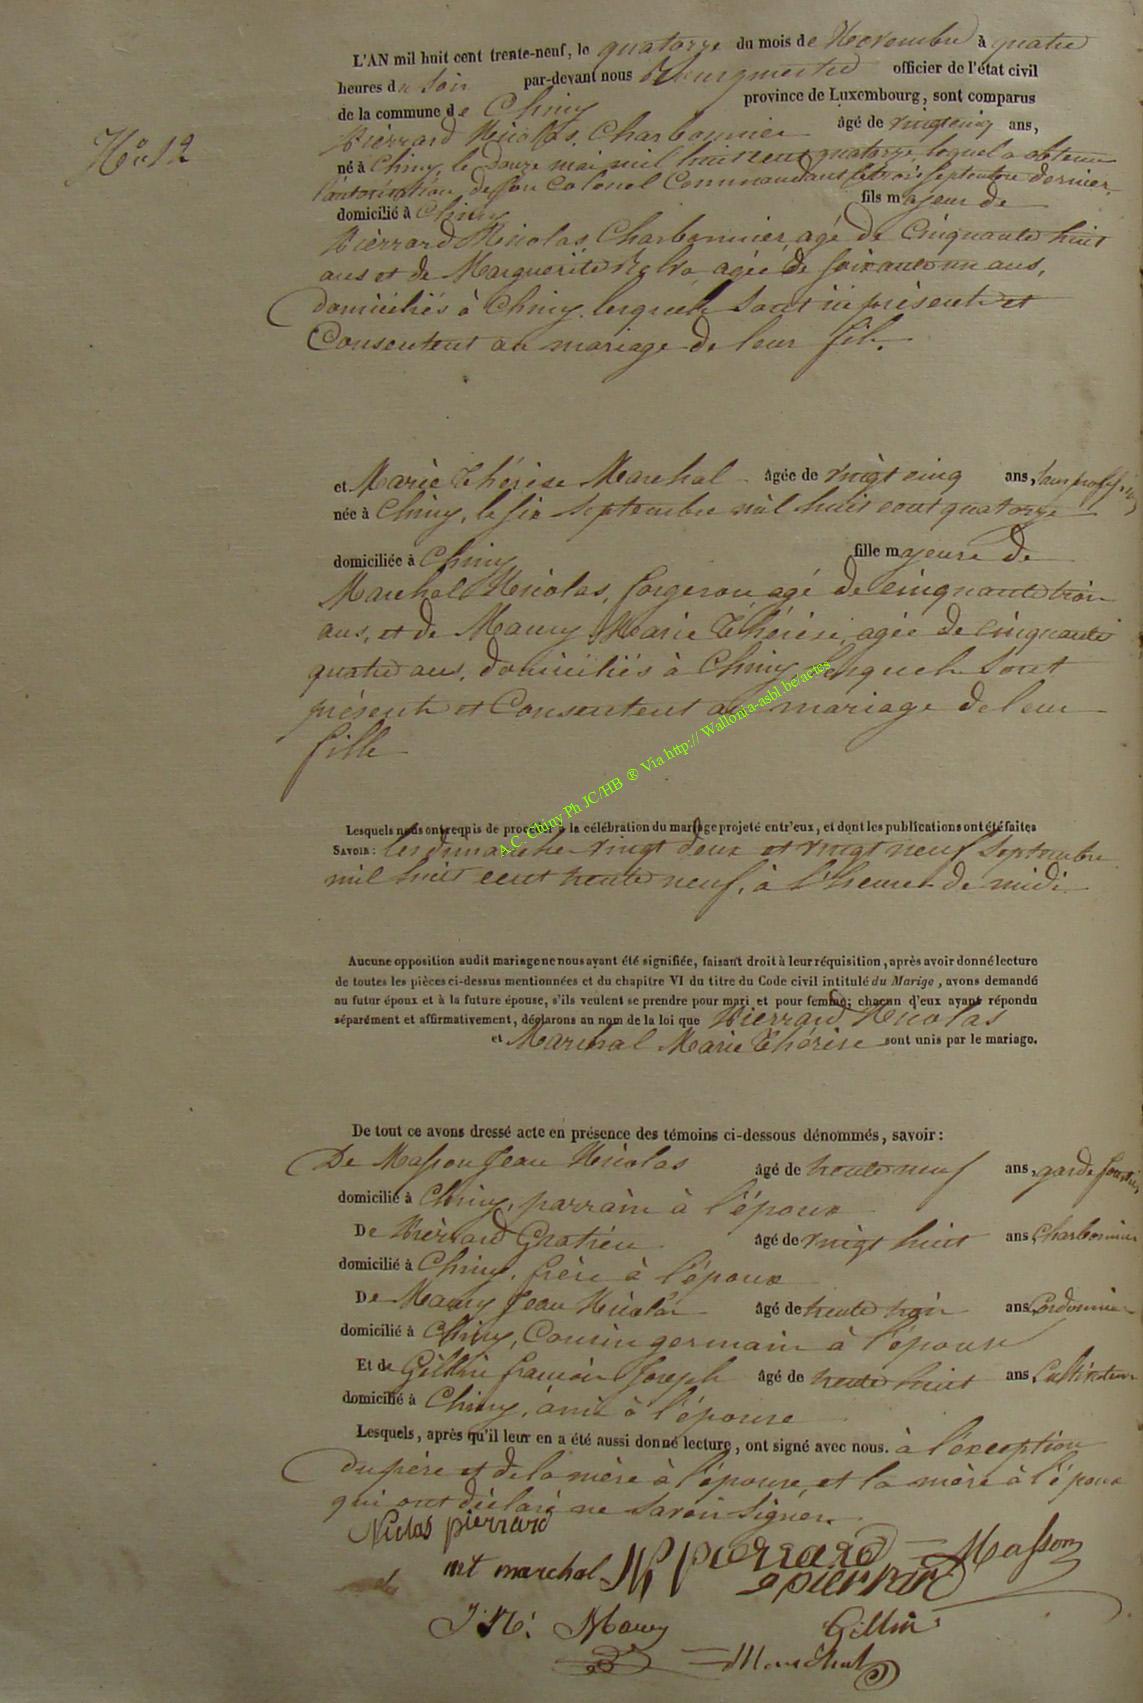 L'AN mil huit cent trente-neuf, le quatorze du mois de Novembre à quatre
heures du Soir par-devant nous Bourgmestre officier de l'état civil
de la commune de Chiny province de Luxembourg, sont comparus
No 12
Pierrard Nicolas, Charbonnier âgé de vingt cinq ans,
né à Chiny, le Douze mai mil huit cent quatorze, lequel a obtenu
l'autorisation de son Colonel Commandant le trois Septembre dernier
domicilié à Chiny fils majeur de
Pierrard Nicolas Charbonnier, agé de Cinquante huit
ans et de Marguerite agée de soixante un ans,
domiciliés à Chiny, lesquels Sont ici présents et
Consentent au mariage de leur fils.
et Marie Thérèse Marchal âgée de vingt cinq ans, sans profession
née à Chiny, le six Septembre mil huit cent quatorze
domiciliée à Chiny fille majeure de
Marchal Nicolas, forgeron agé de cinquante trois
ans, et de Maury Marie Thérèse, agée de cinquante
quatre ans, domiciliés à Chiny, lesquels Sont
présents et Consentent au mariage de leur
fille
Lesquels nous ont requis de procéder à la célébration du mariage projeté entr'eux, et dont les publications ont été faites
SAVOIR : les dimanches vingt deux et vingt neuf Septembre
mil huit cent trente neuf, à l'heure de midi
A.C. Chiny Ph JC/HB ® Via http:// Wallonia-asbl.be/actes
Aucune opposition audit mariage ne nous ayant été signifiée, faisant droit à leur réquisition, après avoir donné lecture
de toutes les pièces ci-dessus mentionnées et du chapitre VI du titre du Code civil intitulé du Marige, avons demandé
au futur époux et à la future épouse, s'ils veulent se prendre pour mari et pour femme; chacun d'eux ayant répondu
séparément et affirmativement, déclarons au nom de la loi que Pierrard Nicolas
et Marchal Marie Thérèse sont unis par le mariage.
De tout ce avons dressé acte en présence des témoins ci-dessous dénommés, savoir :
De Masson Jean Nicolas âgé de trente neuf ans, garde forestier
domicilié à Chiny, parrain à l'époux
De Pierrard Gratien âgé de vingt huit ans Charbonnier
domicilié à Chiny, frère à l'époux
De Maury Jean Nicolas âgé de trente trois ans Cordonnier
domicilié à Chiny, Cousin germain à l'épouse
Et de Gillin françois Joseph âgé de trente huit ans Cultivateur
domicilié à Chiny, ami à l'épouse
Lesquels, après qu'il leur en a été aussi donné lecture, ont signé avec nous. à l'éxception
du père et de la mère à l'épouse, et la mère à l'époux
qui ont déclaré ne Savoir Signer.
Niclas pierrard
mt marchal NP pierrard Masson
g pierrard
J. N. Maury Gillin
Maréchal